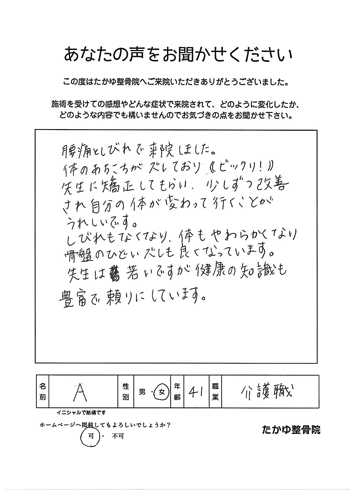 あなたの声をお聞かせください
この度はたかゆ整骨院へご来院いただきありがとうございました。
施術を受けての感想やどんな症状で来院されて、どのように変化したか、
どのような内容でも構いませんのでお気づきの点をお聞かせ下さい。
腰痛としびれで来院しました。
体のあちこちがズレており《ビックリ!》
先生に矯正してもらい、少しずつ改善
され自分の体が変わって行くことが
うれしいです。
しびれもなくなり、体もやわらかくなり
骨盤のひどいズレも良くなっています。
先生は若いですが健康の知識も
豊富で頼りにしています。
名前 A 性別 男・女 年齢 41 職業 介護職
イニシャルで結構です
ホームページへ掲載してもよろしいでしょうか?
可・不可
たかゆ整骨院